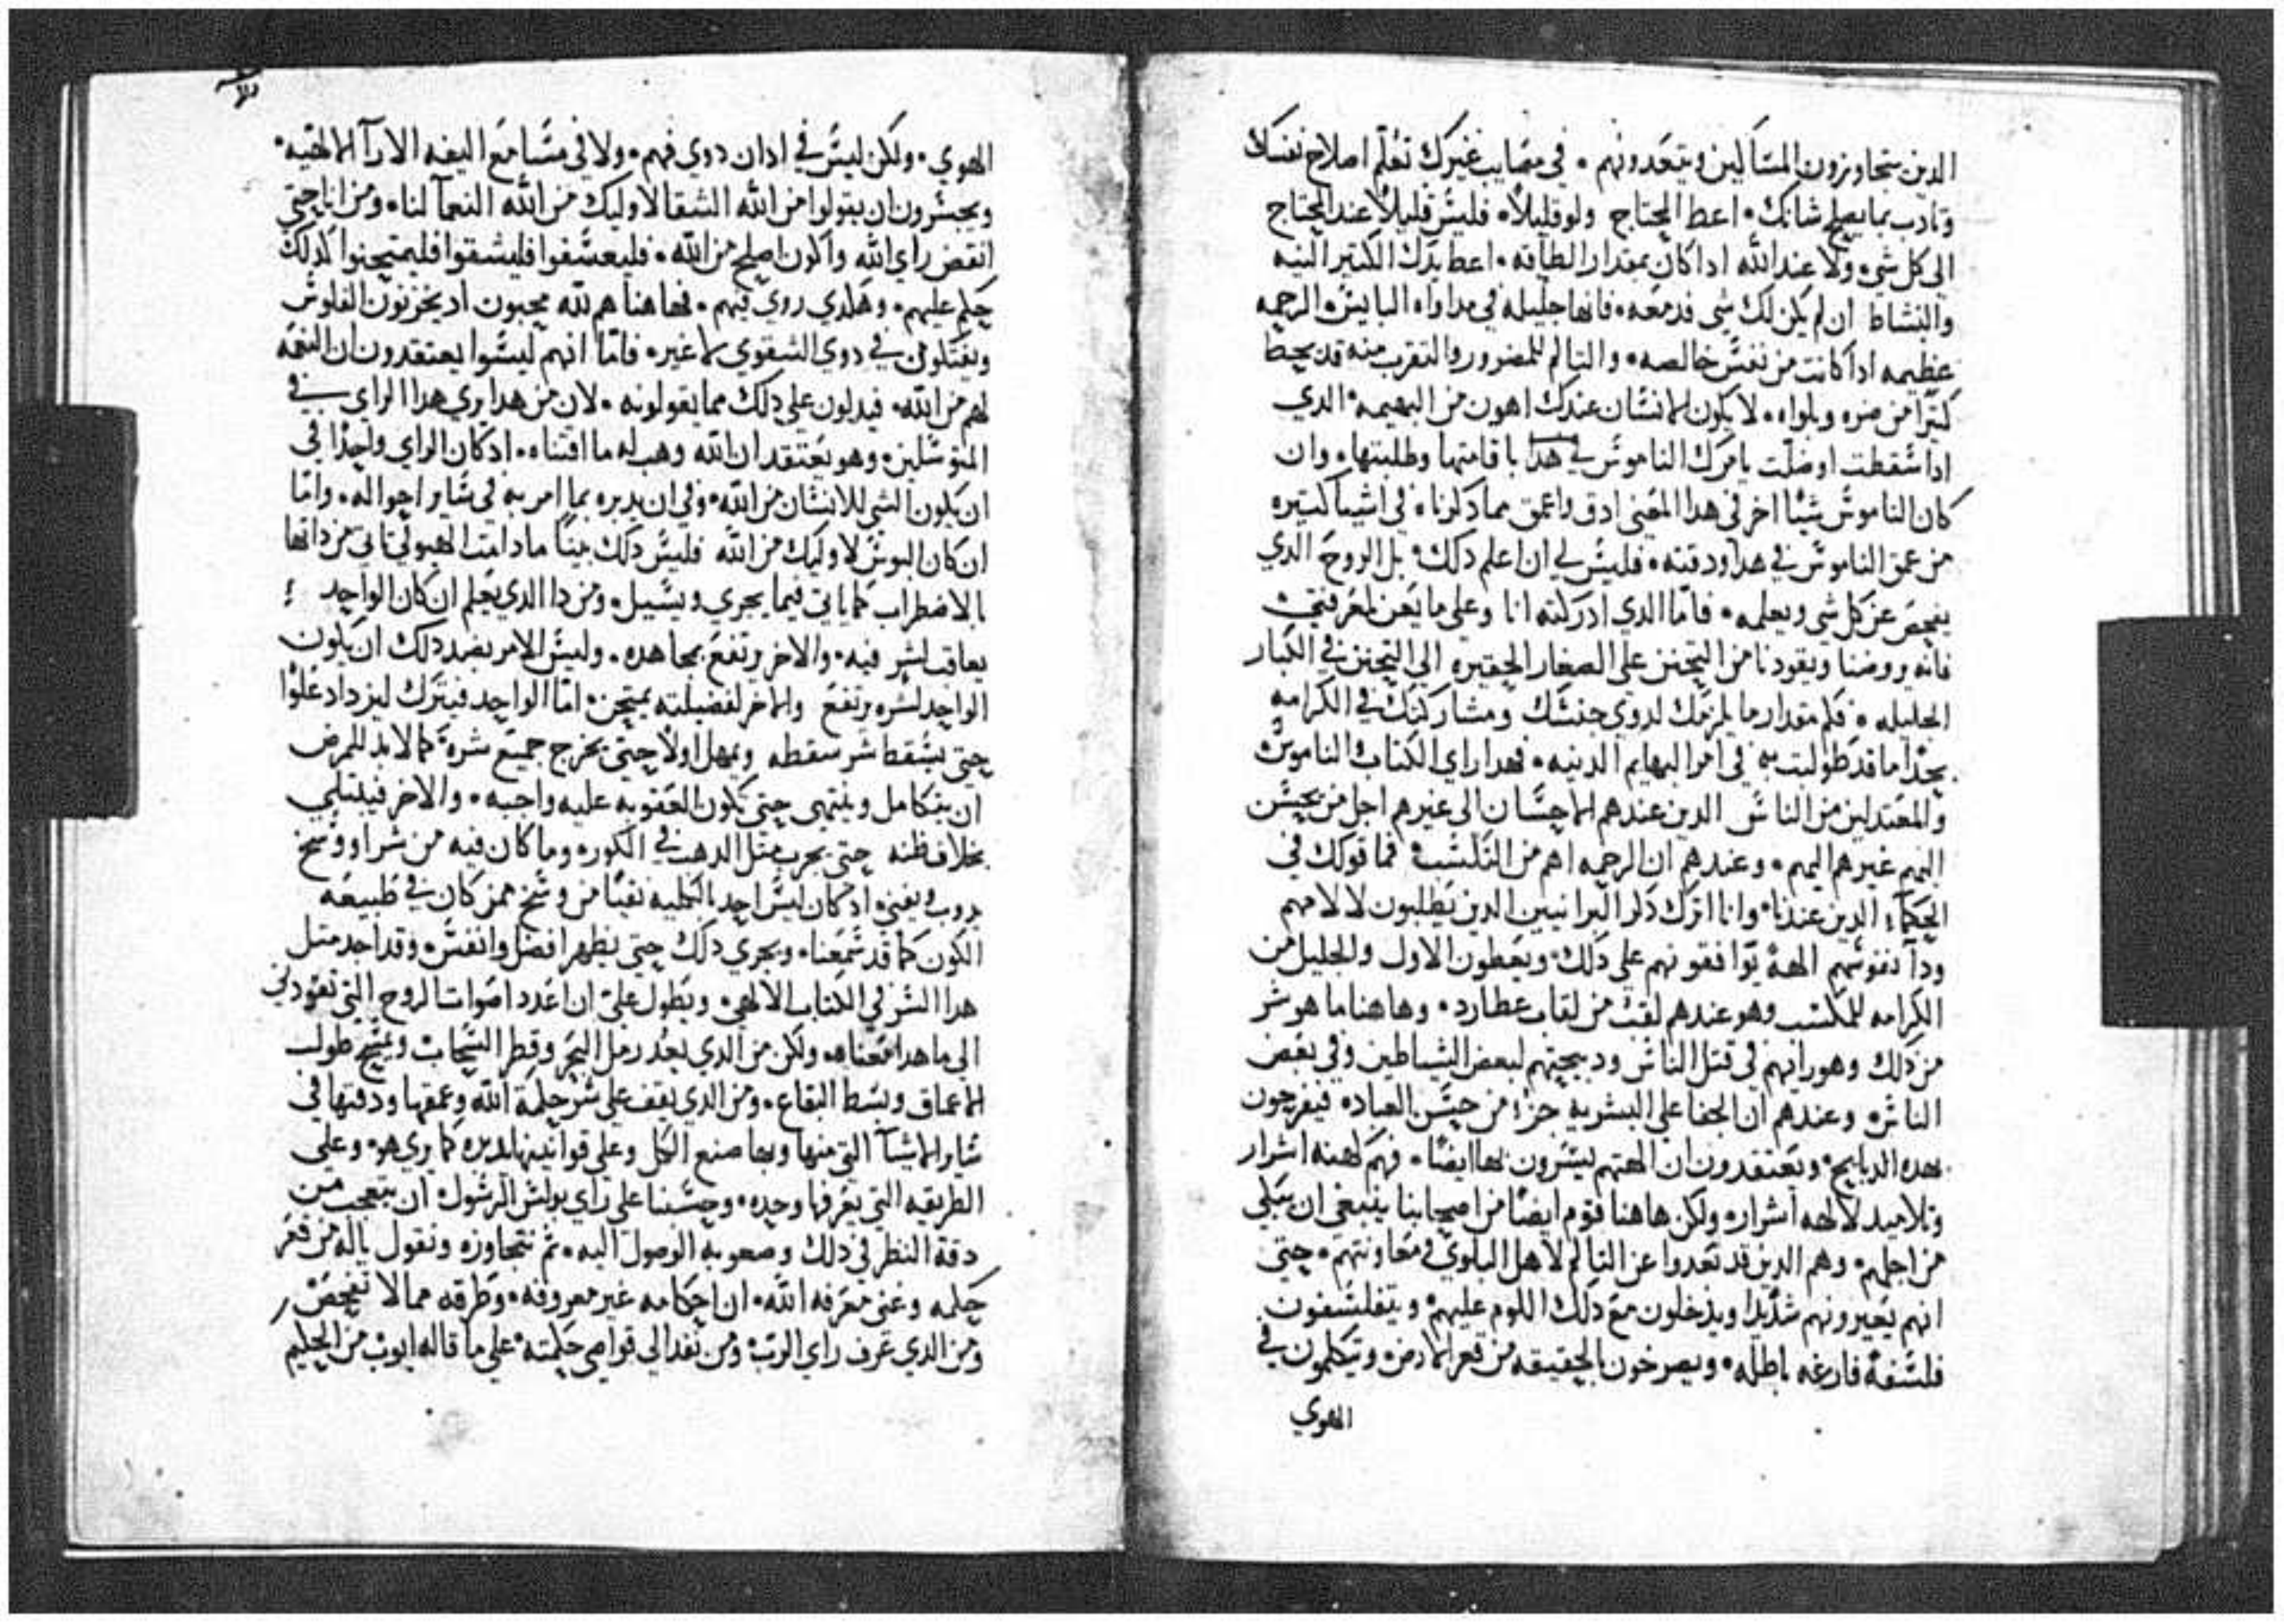 الدين يتجاوزون المساكين ويتعدونهم. في مصايب غيرك تعلم اصلاح نفسك
وتادب بما يصلح شانك. اعط المحتاج ولو قليلاً. فليس قليلاً عند المحتاج
الى كل شي. ولا عند الله ادا كان بمقدار الطاقه. اعط بدل الكتير النيه
والنشاط ان لم يكن لك شي فدمعه. فانها جليله في مداواه البايس. الرحمه
عظيمه ادا كانت من نفس خالصه. والتالم للمضرور والتقرب منه قد يحط
كتيرًا من ضره وبلواه. لا يكون الانسان عندك اهون من البهيمه. الدي
ادا سقطت او ضلت يامرك الناموس في هدا باقامتها وطلبتها. وان
كان الناموس شيًا اخر في هدا المعنى ادق واعمق مما دكرناه في اشيا كتيره
من عمق الناموس في هدا ودقته. فليس لي ان اعلم دلك. بل الروح الدي
يفحص عن كل شي ويعلمه. فامّا الدي ادركته انا وعلى ما يعن لمعرفتي
فانه يروضنا ويقودنا من التحنن على الصغار الحقيره الى التحنن في الكبار
الجليله. فكم مقدار ما يلزمك لدوي جنسك ومشاركتك في الكرامه
بحدا ما قد طولبت به في امر البهايم الدنيه. فهدا راي الكتاب الناموس
والمعتدلين من الناس الدين عندهم الاحسان الى غيرهم اجل من يحسن
اليهم غيرهم اليهم. وعندهم ان الرحمه اهم من التكسب. فما قولك في
الحكما الدين عندنا. وانا اترك دكر البرانيين الدين يطلبون لالامهم
ودا نفوسهم الهة توافقونهم على دلك. ويعطون الاول والجليل من
الكرامه للمكسب وهو عندهم لقب من لقاب عطارد. وهاهنا ما هو شر
من دلك وهو رايهم في قتل الناس ودبيحتهم لبعض الشياطين وفي بعض
الناس. وعندهم ان الجفا على البشريه جزء من حسن العباده فيفرحون
بهده الدبايح. ويعتقدون ان الهتهم ليسرون بها ايضًا. فهم كهنه اشرار
وتلاميد لالهه اشرار. ولكن هاهنا قوم ايضًا من اصحابنا ينبغي ان نبكي
من اجلهم. وهم الدين قد تعدوا عن التالم لاهل البلوي ومعاونتهم. حتى
انهم يعيرونهم شديدا ويدخلون مع دلك اللوم عليهم. ويتفلسفون
فلسفة فارغه باطله. ويصرخون بالحقيقه من قعر الارض. ويتكلمون في
الهوي
الهوي. ولكن ليس في ادان دوي فهم. ولا في مسامع اليفه الارآ الالهيه.
ويجسرون ان يقولوا من الله الشقا لاوليك من الله النعمآ لنا. ومن انا حتى
انقض راي الله واكون اصلح من الله. فليعسفوا فليشقوا فليمتحنوا كدلك
حكم عليهم. وهكدي روي فيهم. فهاهنا هم لله محبون اد يخزنون الفلوس
ويفتكون في دوي الشقوي لا غير. فامّا انهم ليسوا يعتقدون ان النعمه
لهم من الله. فيدلون على دلك مما يقولونه. لان من هدا يري هدا الراي في
المتوسلين. وهو يعتقد ان الله وهب له ما اقتناه. ادكان الراي واحدًا في
ان يكون الشي للانسان من الله. وفي ان يدبره بما امر به في ساير احواله. وامّا
ان كان البوس لاوليك من الله فليس دلك بينًا ما دامت الهيولي تاتي من داتها
بالاضطراب كما ياتي فيما يجري ويسيل. ومن دا الدي يعلم ان كان الواحد
يعاقب لشر فيه. والاخر يرتفع بمجاهده. وليس الامر بضد دلك ان يكون
الواحد لشره يرتفع والاخر لفضيلته يمتحن. امّا الواحد فيترك ليزداد علوًا
حتى يسقط شر سقطه ويمهل اولاً حتى يخرج جميع شره. كما لا بد للمرض
ان يتكامل وينتهي حتى يكون العقوبه عليه واجبه. والاخر فيبتلي
بخلاف ظنه حتى يجرب متل الدهب في الكوره وما كان فيه من شر او وسخ
يدوب ويفني. ادكان ليس احد بالكليه نقيًا من وسخ ممن كان في طبيعه
الكون كما قد سمعنا. ويجري دلك حتى يظهر افضل وانفس. وقد اجد متل
هدا السر في الكتاب الالهي. ويطول عليّ ان اعدد اصوات الروح التي تقودني
الى ما هدا معناه. ولكن من الدي يعد رمل البحر وقطر السحاب ويمسح طول
الاعماق وبسط البقاع. ومن الدي يقف على سر حكمة الله وعمقها ودقتها في
ساير الاشيآ التي منها وبها صنع الكل وعلى قوانينها يدبره كما يري هو. وعلى
الطريقه التي يعرفها وحده. وحسبنا على راي بولس الرسول. ان يتعجب من
دقة النظر في دلك وصعوبه الوصول اليه. تم نتجاوزه ونقول ياله من قعر
حكمه وغنى معرفه الله. ان احكامه غير معروفه. وطرقه مما لا تفحص
ومن الدي عرف راي الرب. ومن نفد الى قواصي حكمته. على ما قاله ايوب من الحكيم